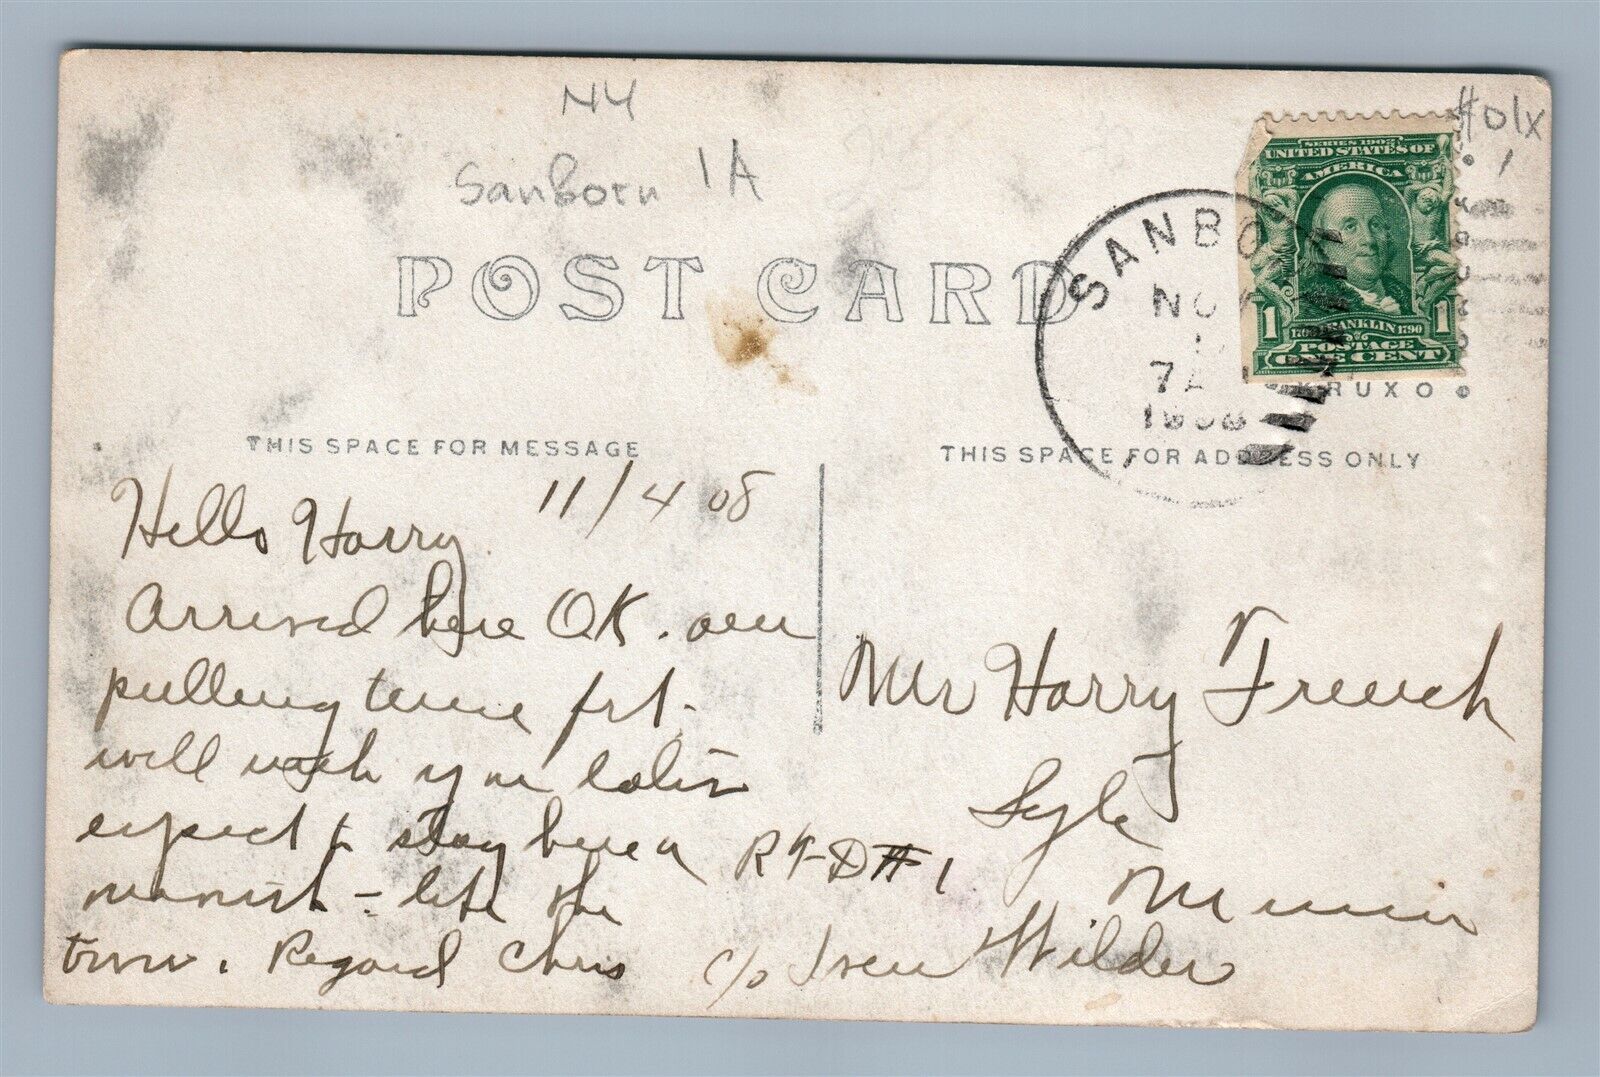 NY
Sanborn IA
#01X
POST CARD
SANBO
NOV
7A
1908
SERIES 1902
UNITED STATES OF
AMERICA
1 1
FRANKLIN 1790
POSTAGE
ONE CENT
KRUXO
THIS SPACE FOR MESSAGE
THIS SPACE FOR ADDRESS ONLY
11/4 08
Hello Harry
Arrived here OK. am
pulling frt.
will you later
expect to stay here a
- like the
town. Regard Chris
Mr Harry French
Lyle
Minn
R F D #1
c/o Wilder